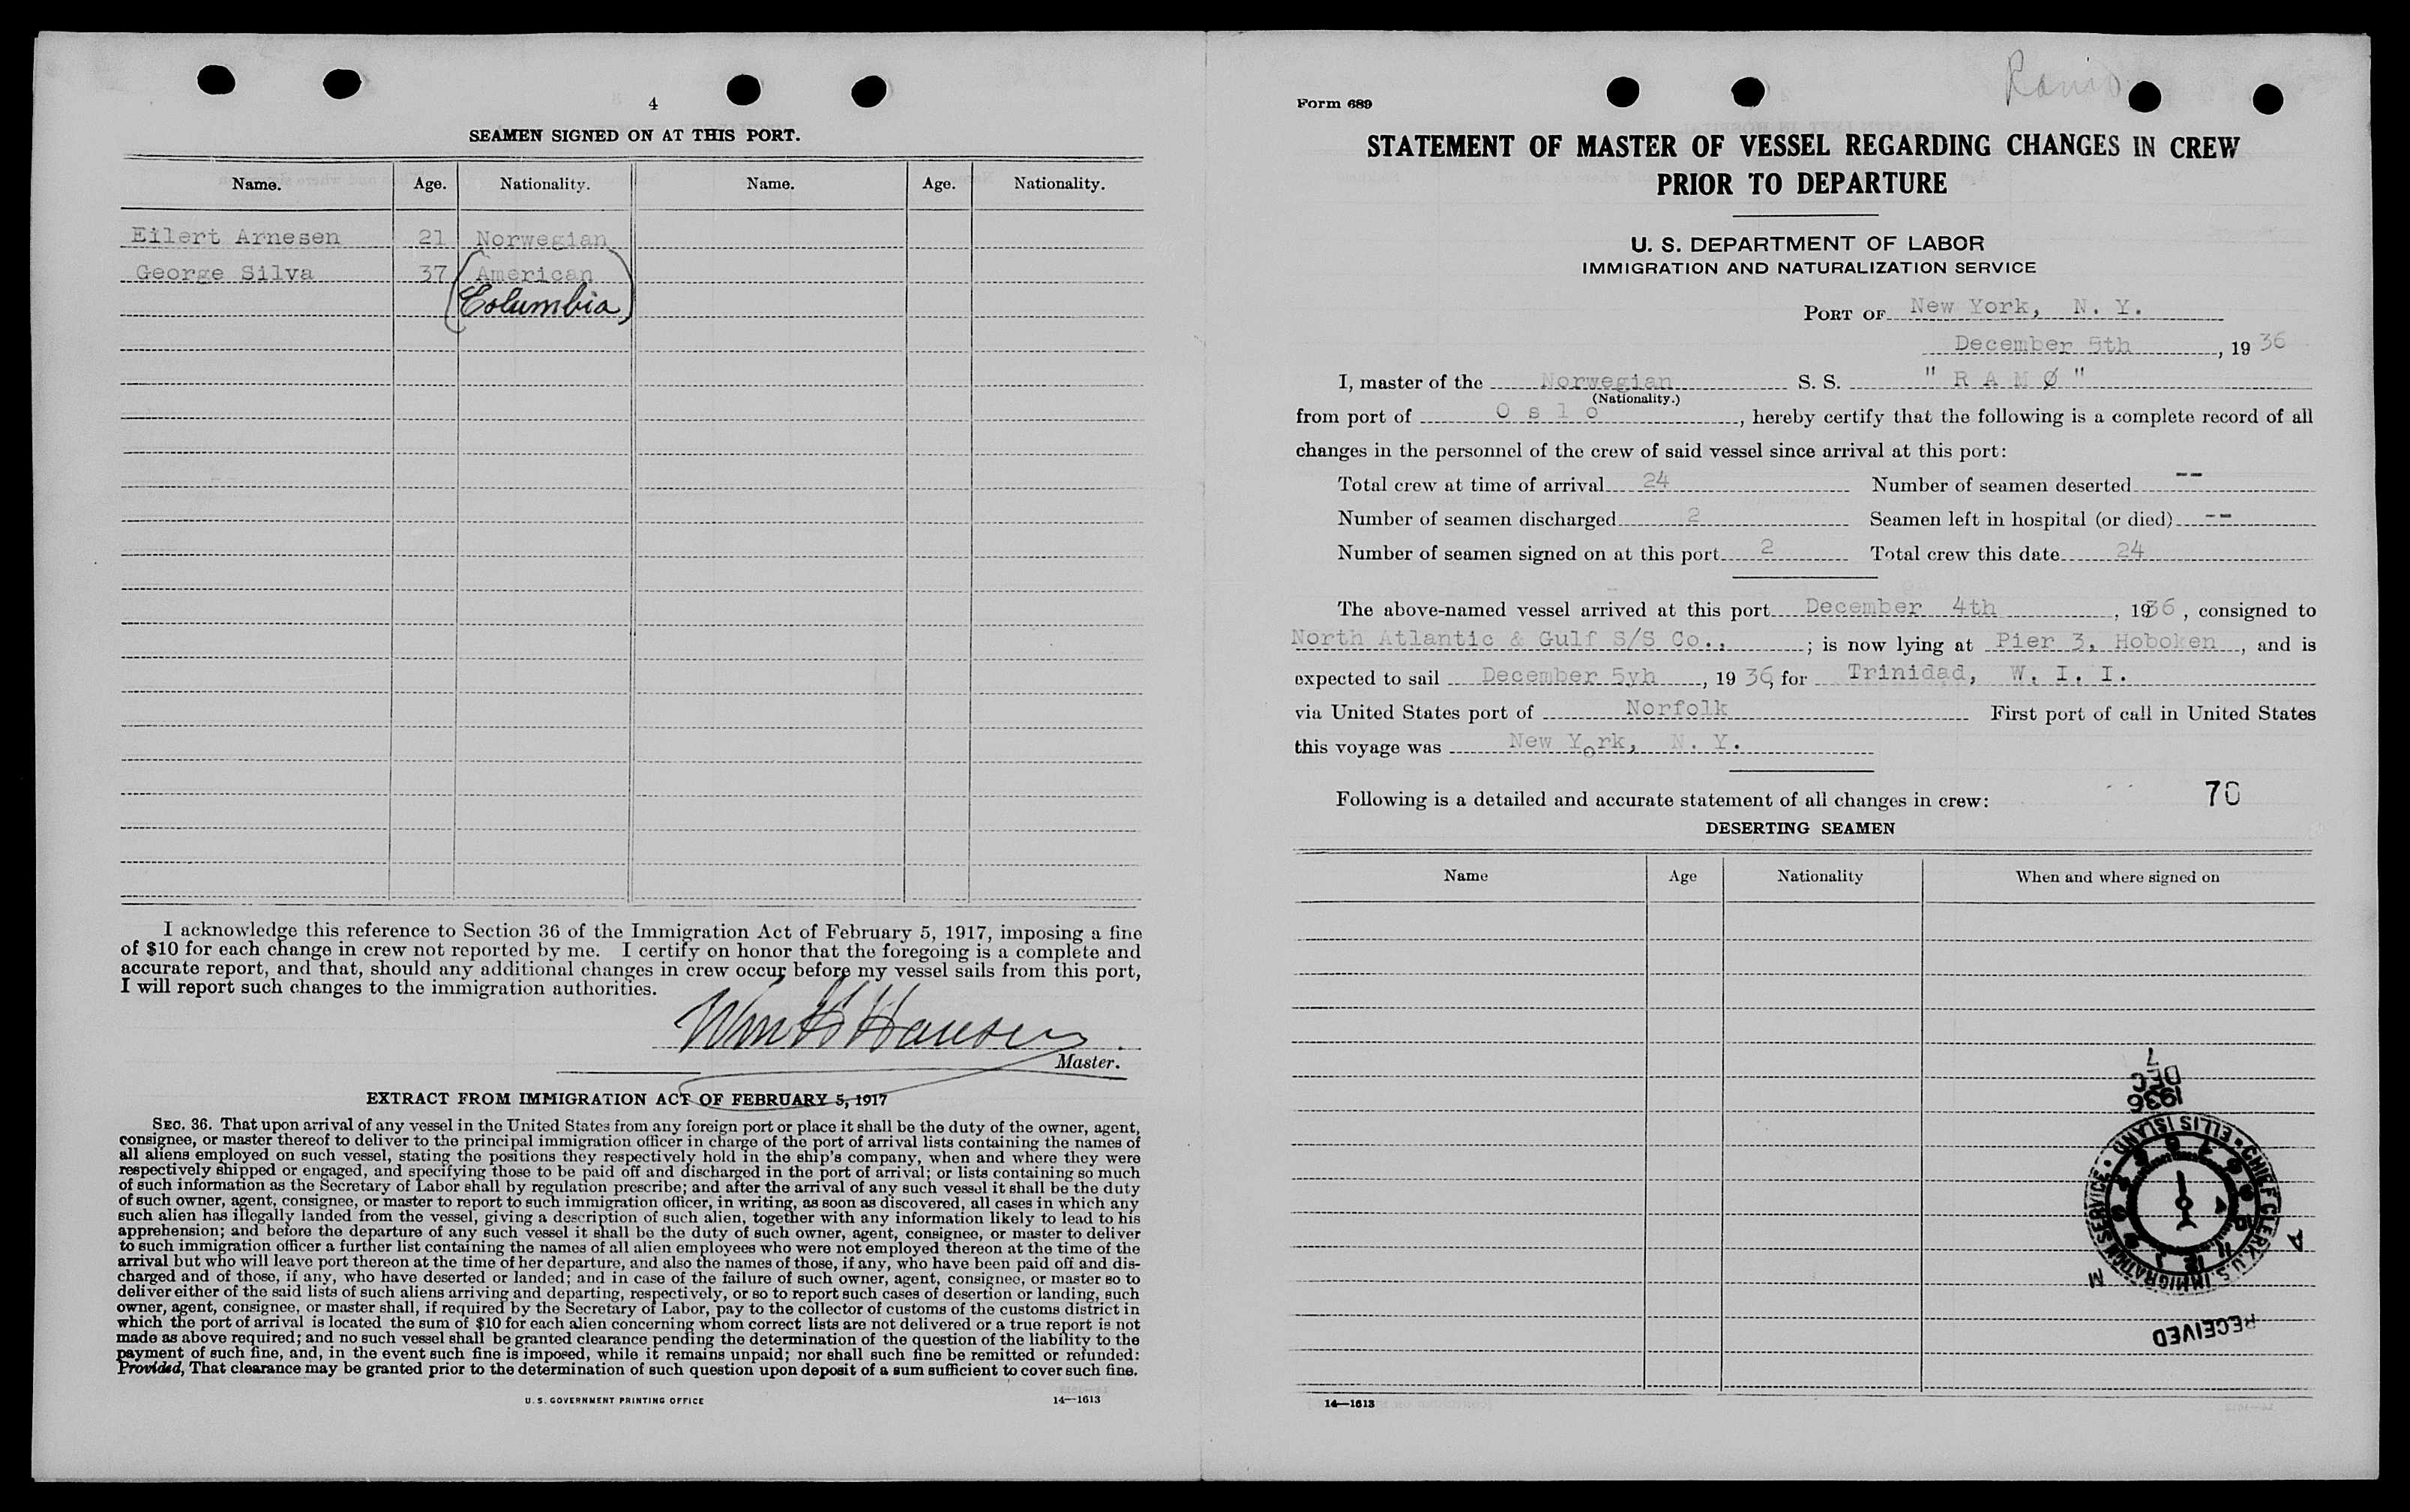 4
SEAMEN SIGNED ON AT THIS PORT.
Name. Age. Nationality. Name. Age. Nationality.
Eilert Arnesen 21 Norwegian
George Silva 37 (American
Columbia)
I acknowledge this reference to Section 36 of the Immigration Act of February 5, 1917, imposing a fine
of $10 for each change in crew not reported by me. I certify on honor that the foregoing is a complete and
accurate report, and that, should any additional changes in crew occur before my vessel sails from this port,
I will report such changes to the immigration authorities.
Wm H Hansen
Master.
EXTRACT FROM IMMIGRATION ACT OF FEBRUARY 5, 1917
SEC. 36. That upon arrival of any vessel in the United States from any foreign port or place it shall be the duty of the owner, agent,
consignee, or master thereof to deliver to the principal immigration officer in charge of the port of arrival lists containing the names of
all aliens employed on such vessel, stating the positions they respectively hold in the ship's company, when and where they were
respectively shipped or engaged, and specifying those to be paid off and discharged in the port of arrival; or lists containing so much
of such information as the Secretary of Labor shall by regulation prescribe; and after the arrival of any such vessel it shall be the duty
of such owner, agent, consignee, or master to report to such immigration officer, in writing, as soon as discovered, all cases in which any
such alien has illegally landed from the vessel, giving a description of such alien, together with any information likely to lead to his
apprehension; and before the departure of any such vessel it shall be the duty of such owner, agent, consignee, or master to deliver
to such immigration officer a further list containing the names of all alien employees who were not employed thereon at the time of the
arrival but who will leave port thereon at the time of her departure, and also the names of those, if any, who have been paid off and dis-
charged and of those, if any, who have deserted or landed; and in case of the failure of such owner, agent, consignee, or master so to
deliver either of the said lists of such aliens arriving and departing, respectively, or so to report such cases of desertion or landing, such
owner, agent, consignee, or master shall, if required by the Secretary of Labor, pay to the collector of customs of the customs district in
which the port of arrival is located the sum of $10 for each alien concerning whom correct lists are not delivered or a true report is not
made as above required; and no such vessel shall be granted clearance pending the determination of the question of the liability to the
payment of such fine, and, in the event such fine is imposed, while it remains unpaid; nor shall such fine be remitted or refunded:
Provided, That clearance may be granted prior to the determination of such question upon deposit of a sum sufficient to cover such fine.
U. S. GOVERNMENT PRINTING OFFICE 14—1613
Form 689
STATEMENT OF MASTER OF VESSEL REGARDING CHANGES IN CREW
PRIOR TO DEPARTURE
U. S. DEPARTMENT OF LABOR
IMMIGRATION AND NATURALIZATION SERVICE
PORT OF New York, N. Y.
December 5th, 19 36
I, master of the Norwegian S. S. " R A M Ø "
(Nationality.)
from port of O s l o, hereby certify that the following is a complete record of all
changes in the personnel of the crew of said vessel since arrival at this port:
Total crew at time of arrival 24 Number of seamen deserted --
Number of seamen discharged 2 Seamen left in hospital (or died) --
Number of seamen signed on at this port 2 Total crew this date 24
The above-named vessel arrived at this port December 4th, 1936, consigned to
North Atlantic & Gulf S/S Co., ; is now lying at Pier 3, Hoboken, and is
expected to sail December 5yh, 19 36, for Trinidad, W. I. I.
via United States port of Norfolk First port of call in United States
this voyage was New York, N. Y.
Following is a detailed and accurate statement of all changes in crew: 70
DESERTING SEAMEN
Name Age Nationality When and where signed on
RECEIVED
CHIEF CLERK, U.S. IMMIGRATION SERVICE • ELLIS ISLAND •
A M
1936
DEC
7
14—1613